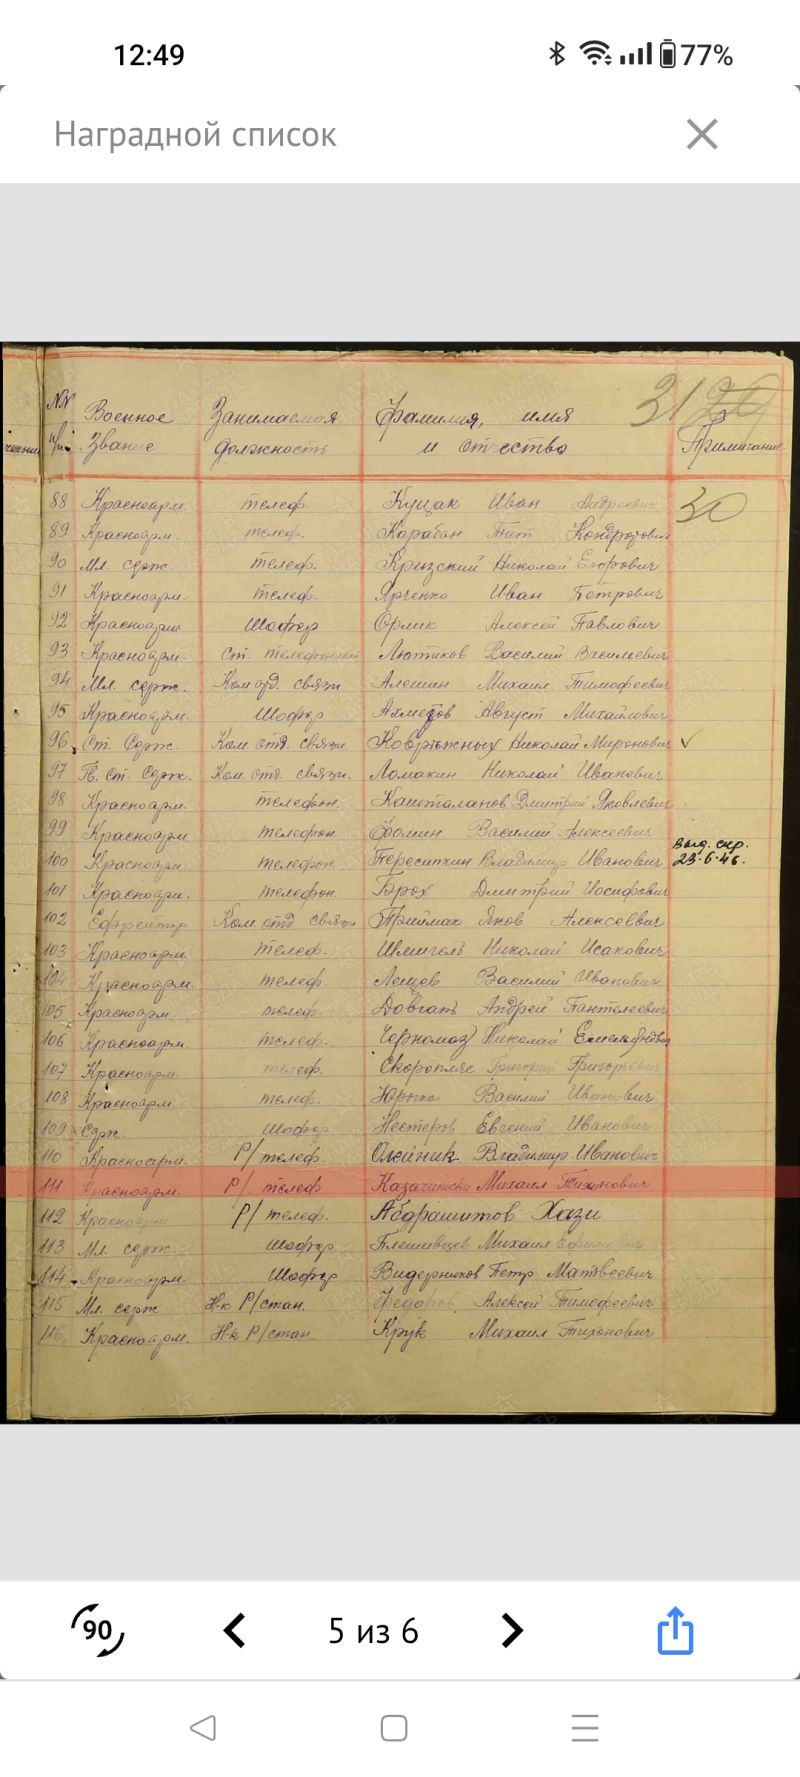 12:49 77%
Наградной список
NN п/п Военное Звание Занимаемая должность Фамилия, имя и отчество Примечание
31 29
88 Красноарм. телеф. Куцак Иван Андреевич 30
89 Красноарм. телеф. Карабан Тит Кондратович
90 Мл. серж. телеф. Крызский Николай Егорович
91 Красноарм. телеф. Ярченко Иван Петрович
92 Красноарм Шофер Орлик Алексей Павлович
93 Красноарм. Ст. телефонист Лютиков Василий Васильевич
94 Мл. серж. Ком отд. связи Алешин Михаил Тимофеевич
95 Красноарм. Шофер Ахметов Август Михайлович
96 Ст. Серж. Ком. отд. связи Ковряжных Николай Миронович ✓
97 Гв. ст. Серж. Ком. отд. связи. Ломакин Николай Иванович
98 Красноарм. телефон. Кашталанов Дмитрий Яковлевич
99 Красноарм телефон Фомин Василий Алексеевич
100 Красноарм. телефон. Пересыпкин Владимир Иванович Выд. спр. 23.6.46.
101 Красноарм. телефон. Брох Дмитрий Иосифович
102 Ефрейтор Ком. отд связи Приймак Яков Алексеевич
103 Красноарм телеф. Шмигель Николай Исакович
104 Красноарм. телеф. Василий Иванович
105 Красноарм. телеф. Довгань Андрей Пантелеевич
106 Красноарм. телеф. Черномаз Николай Емельянович
107 Красноарм. телеф. Скоропляс Григорий Григорьевич
108 Красноарм. телеф. Юрыха Василий Иванович
109 Серж. Шофер Нестеров Евгений Иванович
110 Красноарм. Р/телеф. Олейник Владимир Иванович
111 Красноарм. Р/телеф Казачински Михаил Тихонович
112 Красноарм Р/телеф. Абдрашитов Хази
113 Мл. серж. Шофер Плешивцев Михаил Ефимович
114 Красноарм. Шофер Видерников Петр Матвеевич
115 Мл. серж Н-к Р/стан. Федоров Алексей Тимофеевич
116 Красноарм. Н-к Р/стан. Крук Михаил Тихонович
90 5 из 6